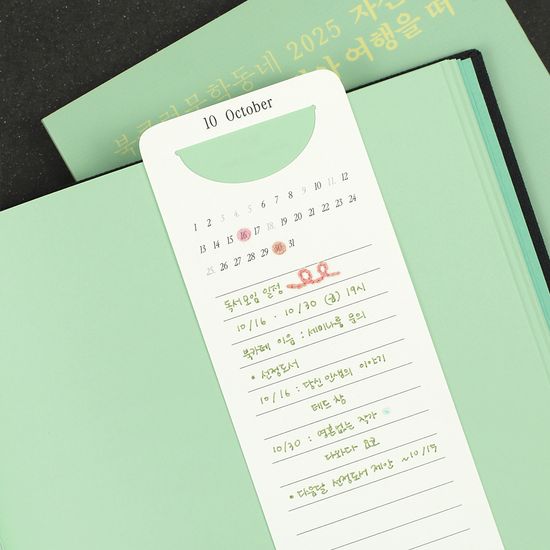 북클럽문학동네 2025
여행을 떠
10 October
1 2 3 4 5 6 7 8 9 10 11 12
13 14 15 16 17 18 19 20 21 22 23 24
25 26 27 28 29 30 31
독서모임 일정
10/16 · 10/30 (목) 19시
북카페 이음 : 세미나룸 문의
• 선정도서
10/16 : 당신 인생의 이야기
테드 창
10/30 : 영혼없는 작가
다와다 요코
• 다음달 선정도서 제안 ~10/15